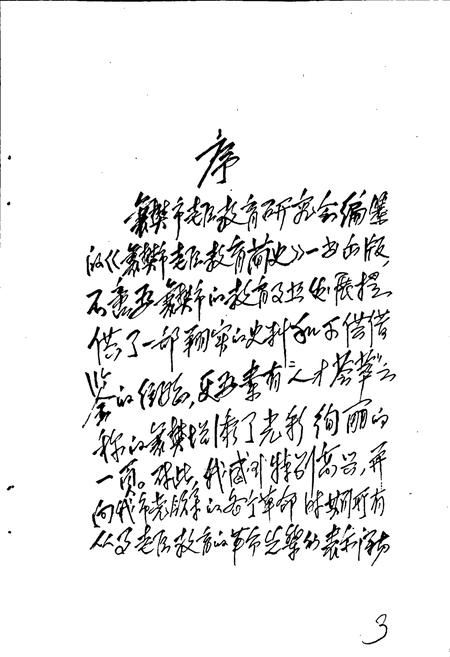 序
襄樊市老区教育研究会编纂
的《襄樊市老区教育简史》一书出版,
不事为襄樊市的教育事业发展提
供了一部翔实的史料和可供借
鉴的经验,更为素有“人才荟萃”之
称的襄樊增添了光彩绚丽的
一页。对此,我感到特别高兴,并
向我市老区的各个革命时期所有
从事老区教育的革命先辈的表示深切
3